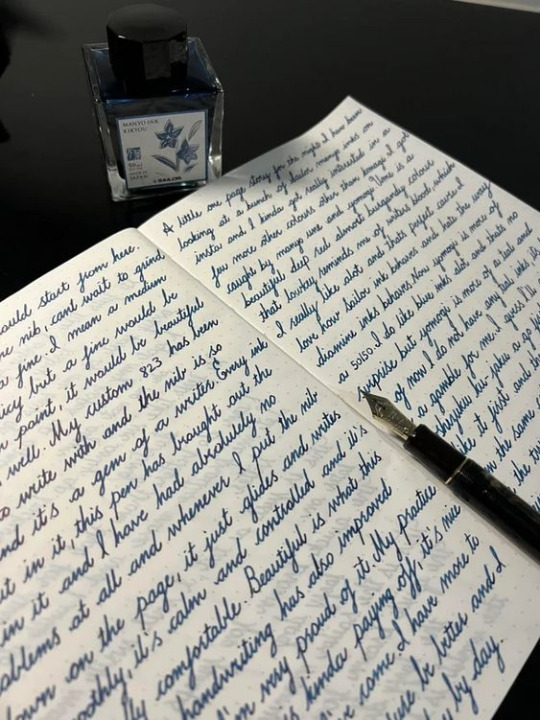 MANYO INK
KIKYOU
50ml
MADE IN
JAPAN
SAILOR
would start from here.
nib, cant wait to grind
a fine. I mean a medium
juicy but a fine would be
paint, it would be beautiful
well. My custom 823 has been
to write with and the nib is so
and it's a gem of a writer. Every ink
put in it, this pen has brought out the
in it and I have had absolutely no
problems at all and whenever I put the nib
down on the page, it just glides and writes
smoothly, it's calm and controlled and it's
comfortable. Beautiful is what this
handwriting has also improved
I'm very proud of it. My practice
is kinda paying off, it's nice
come. I have more to
be better and I
by day.
A little one page story for the night. I have been
looking at a bunch of Sailor manyo inks on
insta and I kinda got really interested in a
few more other colours other than konagi. I got
caught by manyo ume and yomogi. Ume is a
beautiful deep red almost burgundy colour
that lowkey reminds me of dried blood, which
I really like alot and thats perfect cause I
love how sailor ink behaves and hate the way
diamine inks behaves. Now yomogi is more of
a 50/50. I do like blue inks alot and thats no
surprise but yomogi is more of a teal and
of now I do not have any teal inks
a gamble for me. I guess I'll
shigiku
it just and
the same